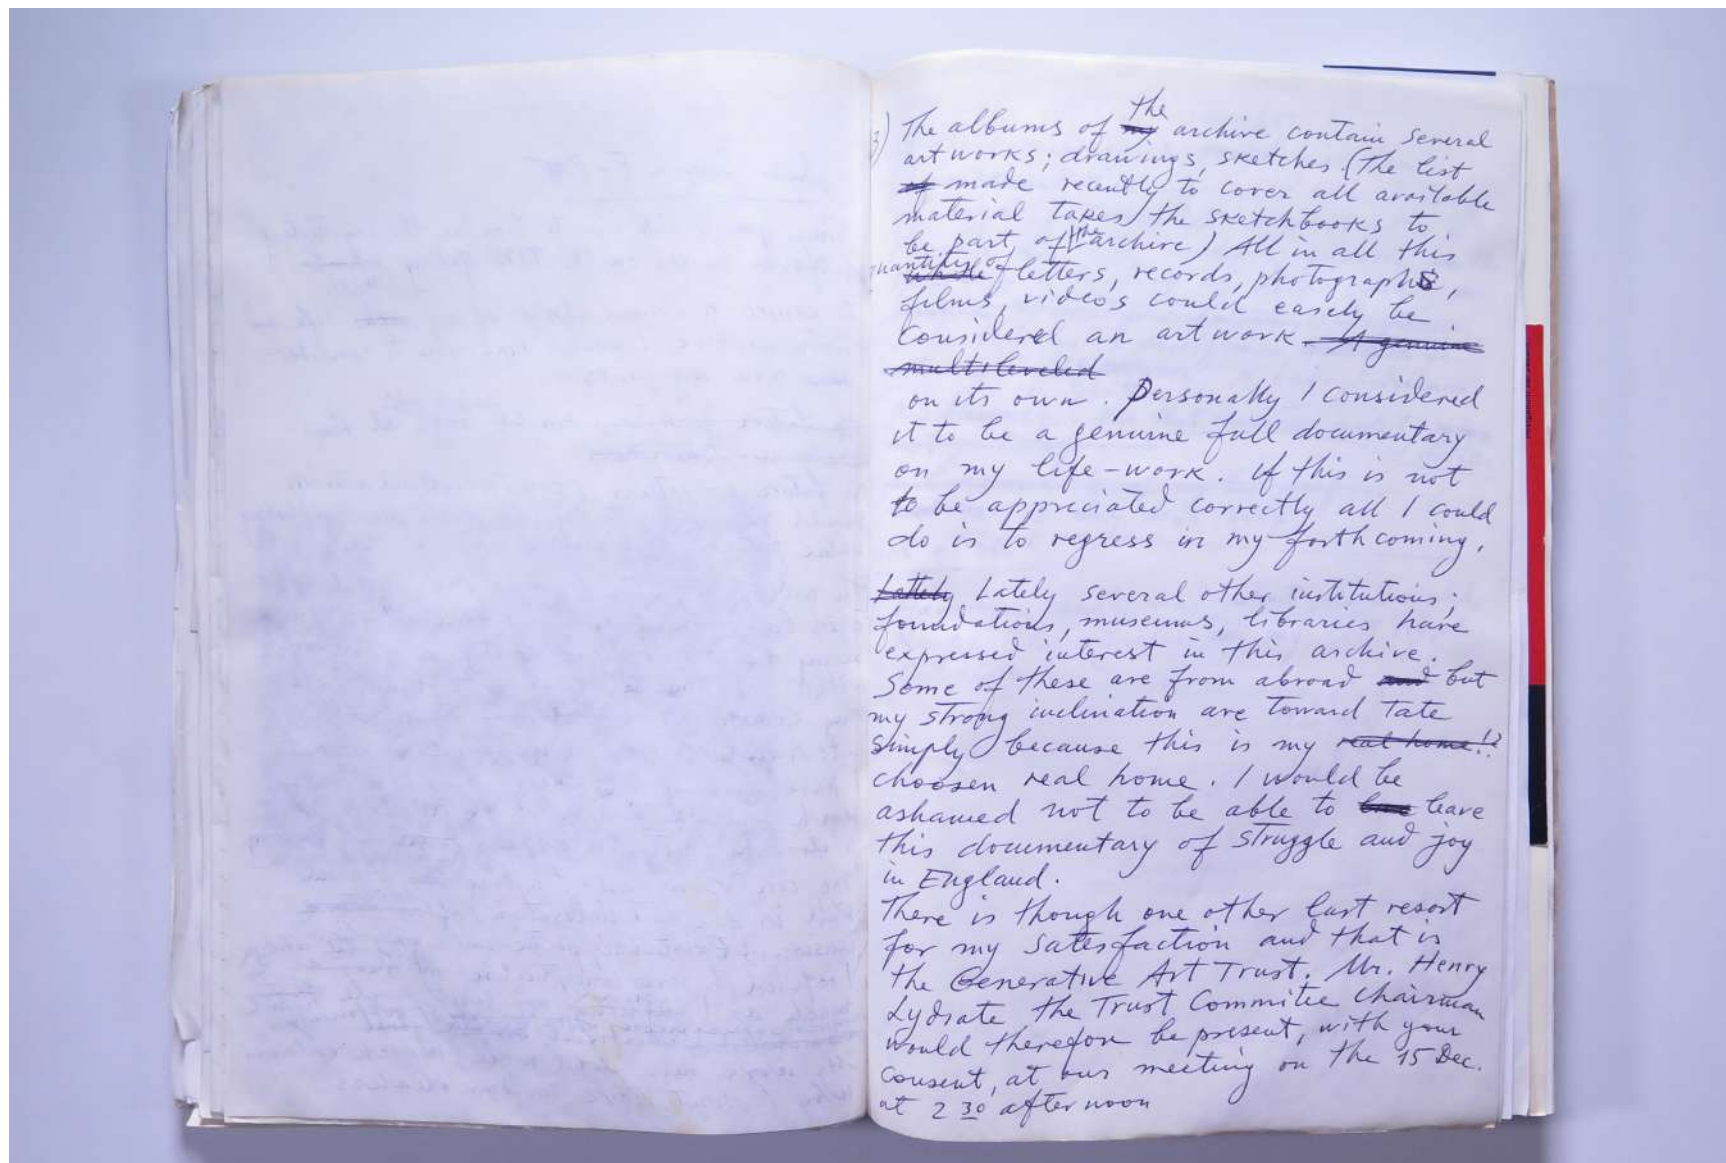 the
3) The albums of my archive contain several
art works; drawings, sketches (The list
of made recently to cover all available
material takes the sketchbooks to
be part of the archive) All in all this
quantity of
whole letters, records, photographs,
films, videos could easely be
considered an art work. A genuine
multileveled
on its own. Personally I considered
it to be a genuine full documentary
on my life-work. If this is not
to be appreciated correctly all I could
do is to regress in my forthcoming.
Lattely Lately several other institutions;
foundations, museums, libraries have
expressed interest in this archive.
Some of these are from abroad and but
my strong inclination are toward Tate
simply because this is my real home!?
choosen real home. I would be
ashamed not to be able to leave
this documentary of struggle and joy
in England.
There is though one other last resort
for my satesfaction and that is
the Generative Art Trust. Mr. Henry
Lydiate the Trust Commitee Chairman
would therefore be present, with your
consent, at our meeting on the 15 Dec.
at 2 30 after noon